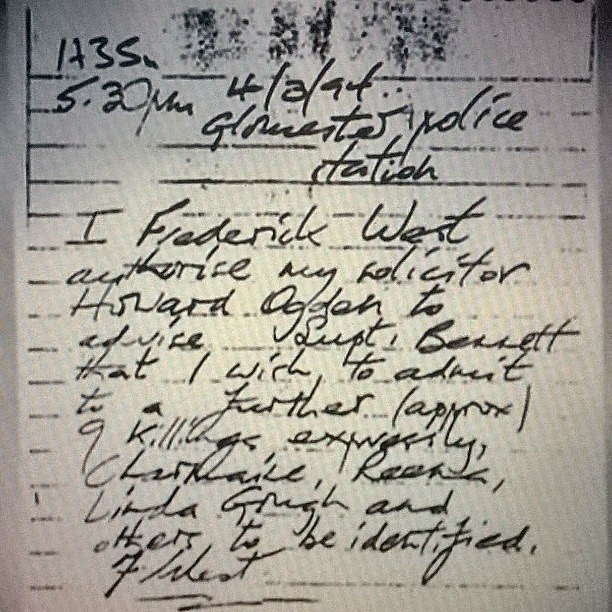 1735
5.30pm 4/3/94
Gloucester police
station
I Frederick West
authorise my solicitor
Howard Ogden to
advise Supt. Bennett
that I wish to admit
to a further (approx)
9 killings, expressly,
Charmaine, Reena,
Linda Gough and
others to be identified.
F West